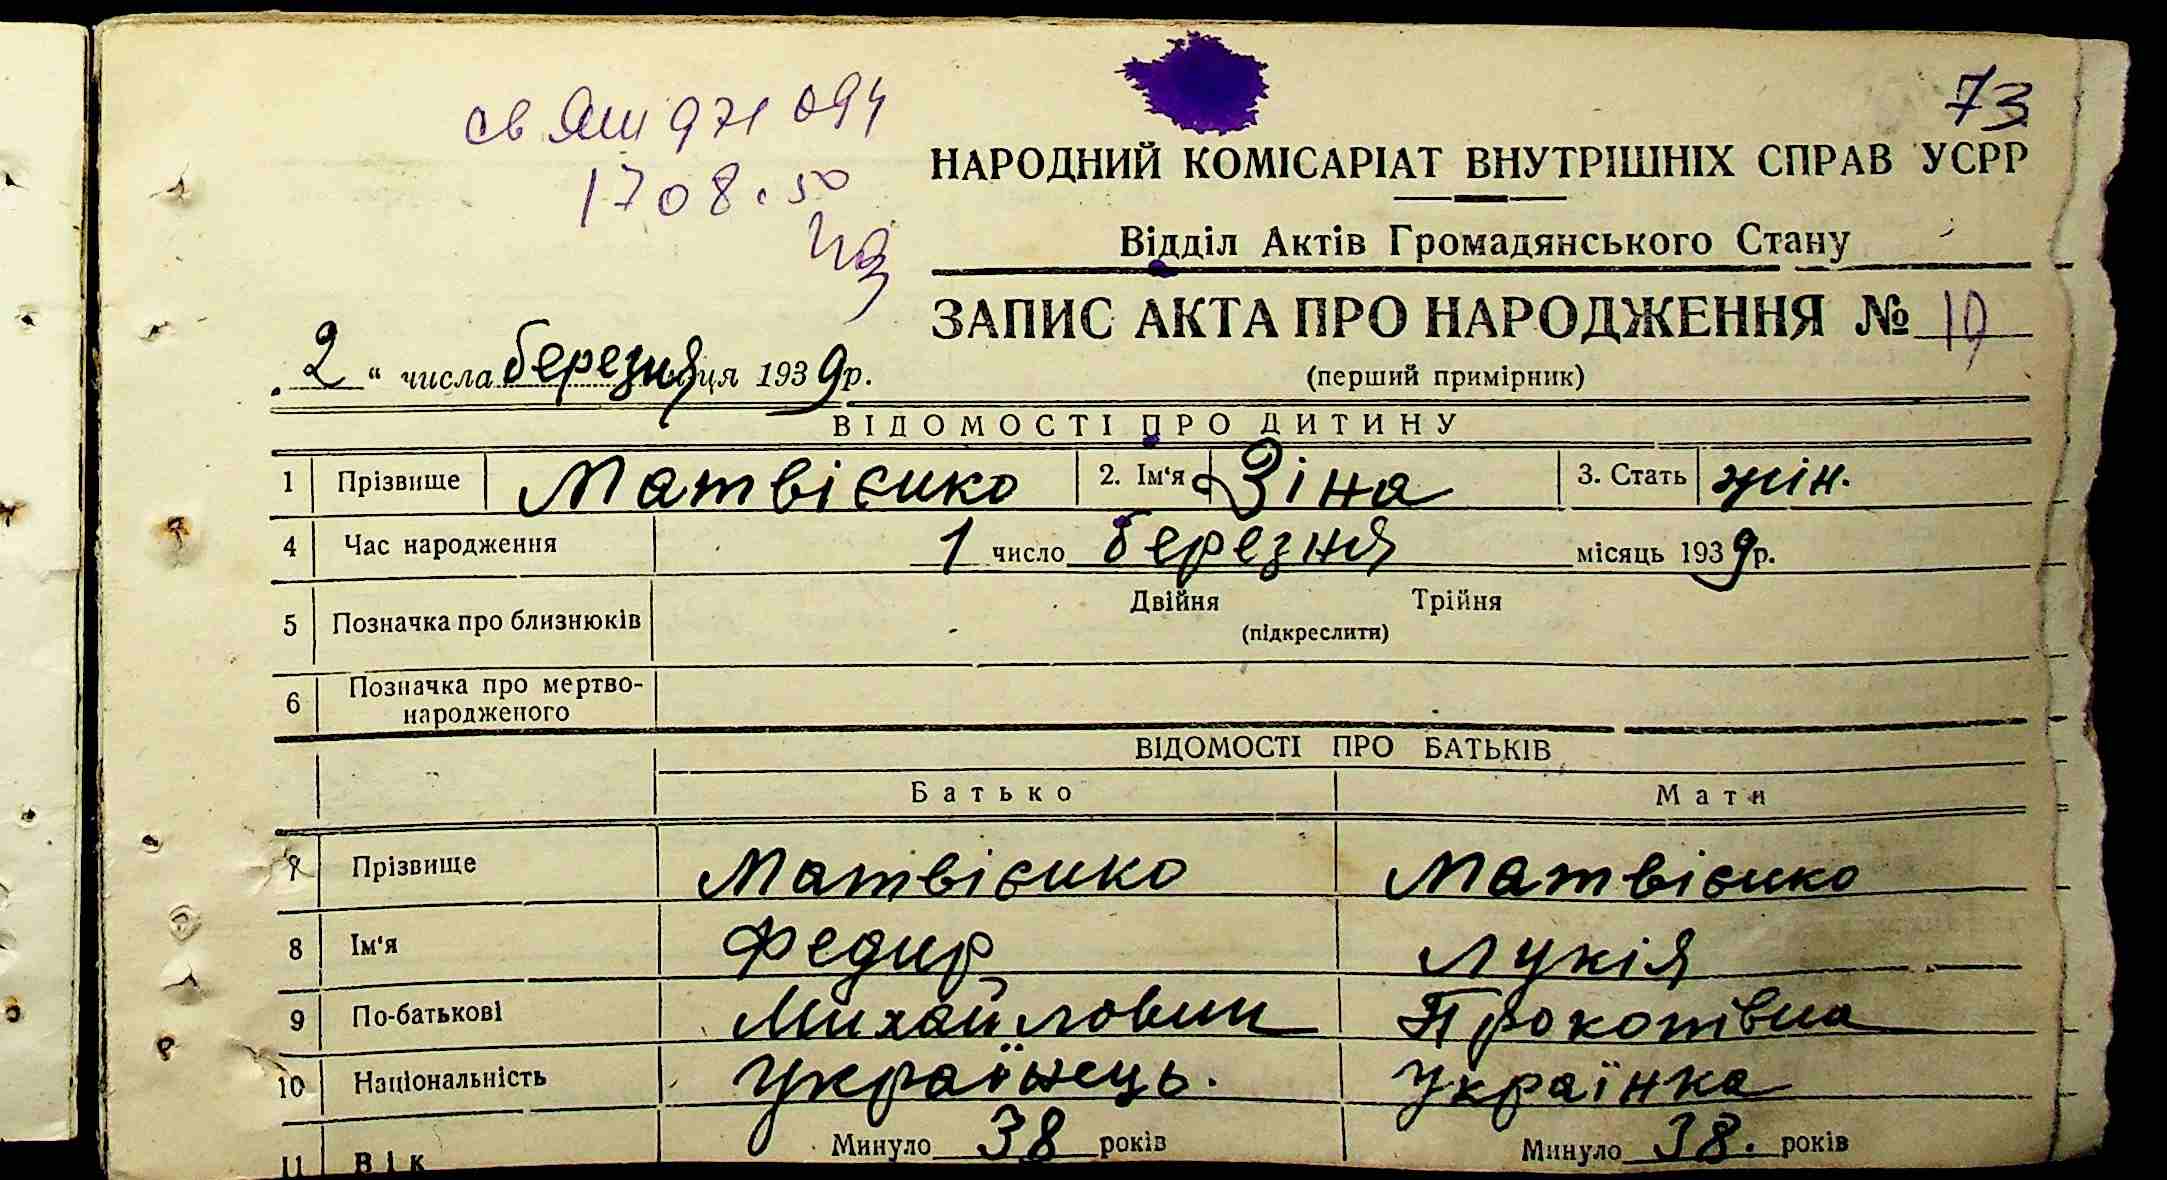 73
св ЯШ 971 094
1708.50
НАРОДНИЙ КОМІСАРІАТ ВНУТРІШНІХ СПРАВ УСРР
Відділ Актів Громадянського Стану
ЗАПИС АКТА ПРО НАРОДЖЕННЯ № 19
(перший примірник)
„2“ числа березня ця 1939 р.
ВІДОМОСТІ ПРО ДИТИНУ
1 Прізвище Матвієнко 2. Ім'я Зіна 3. Стать жін.
4 Час народження 1 число березня місяць 1939 р.
5 Позначка про близнюків Двійня Трійня
(підкреслити)
6 Позначка про мертво-
народженого
ВІДОМОСТІ ПРО БАТЬКІВ
Батько Мати
7 Прізвище Матвієнко Матвієнко
8 Ім'я Федир Лукія
9 По-батькові Михайлович Прокопівна
10 Національність Українець. Українка
11 Вік Минуло 38 років Минуло 38. років